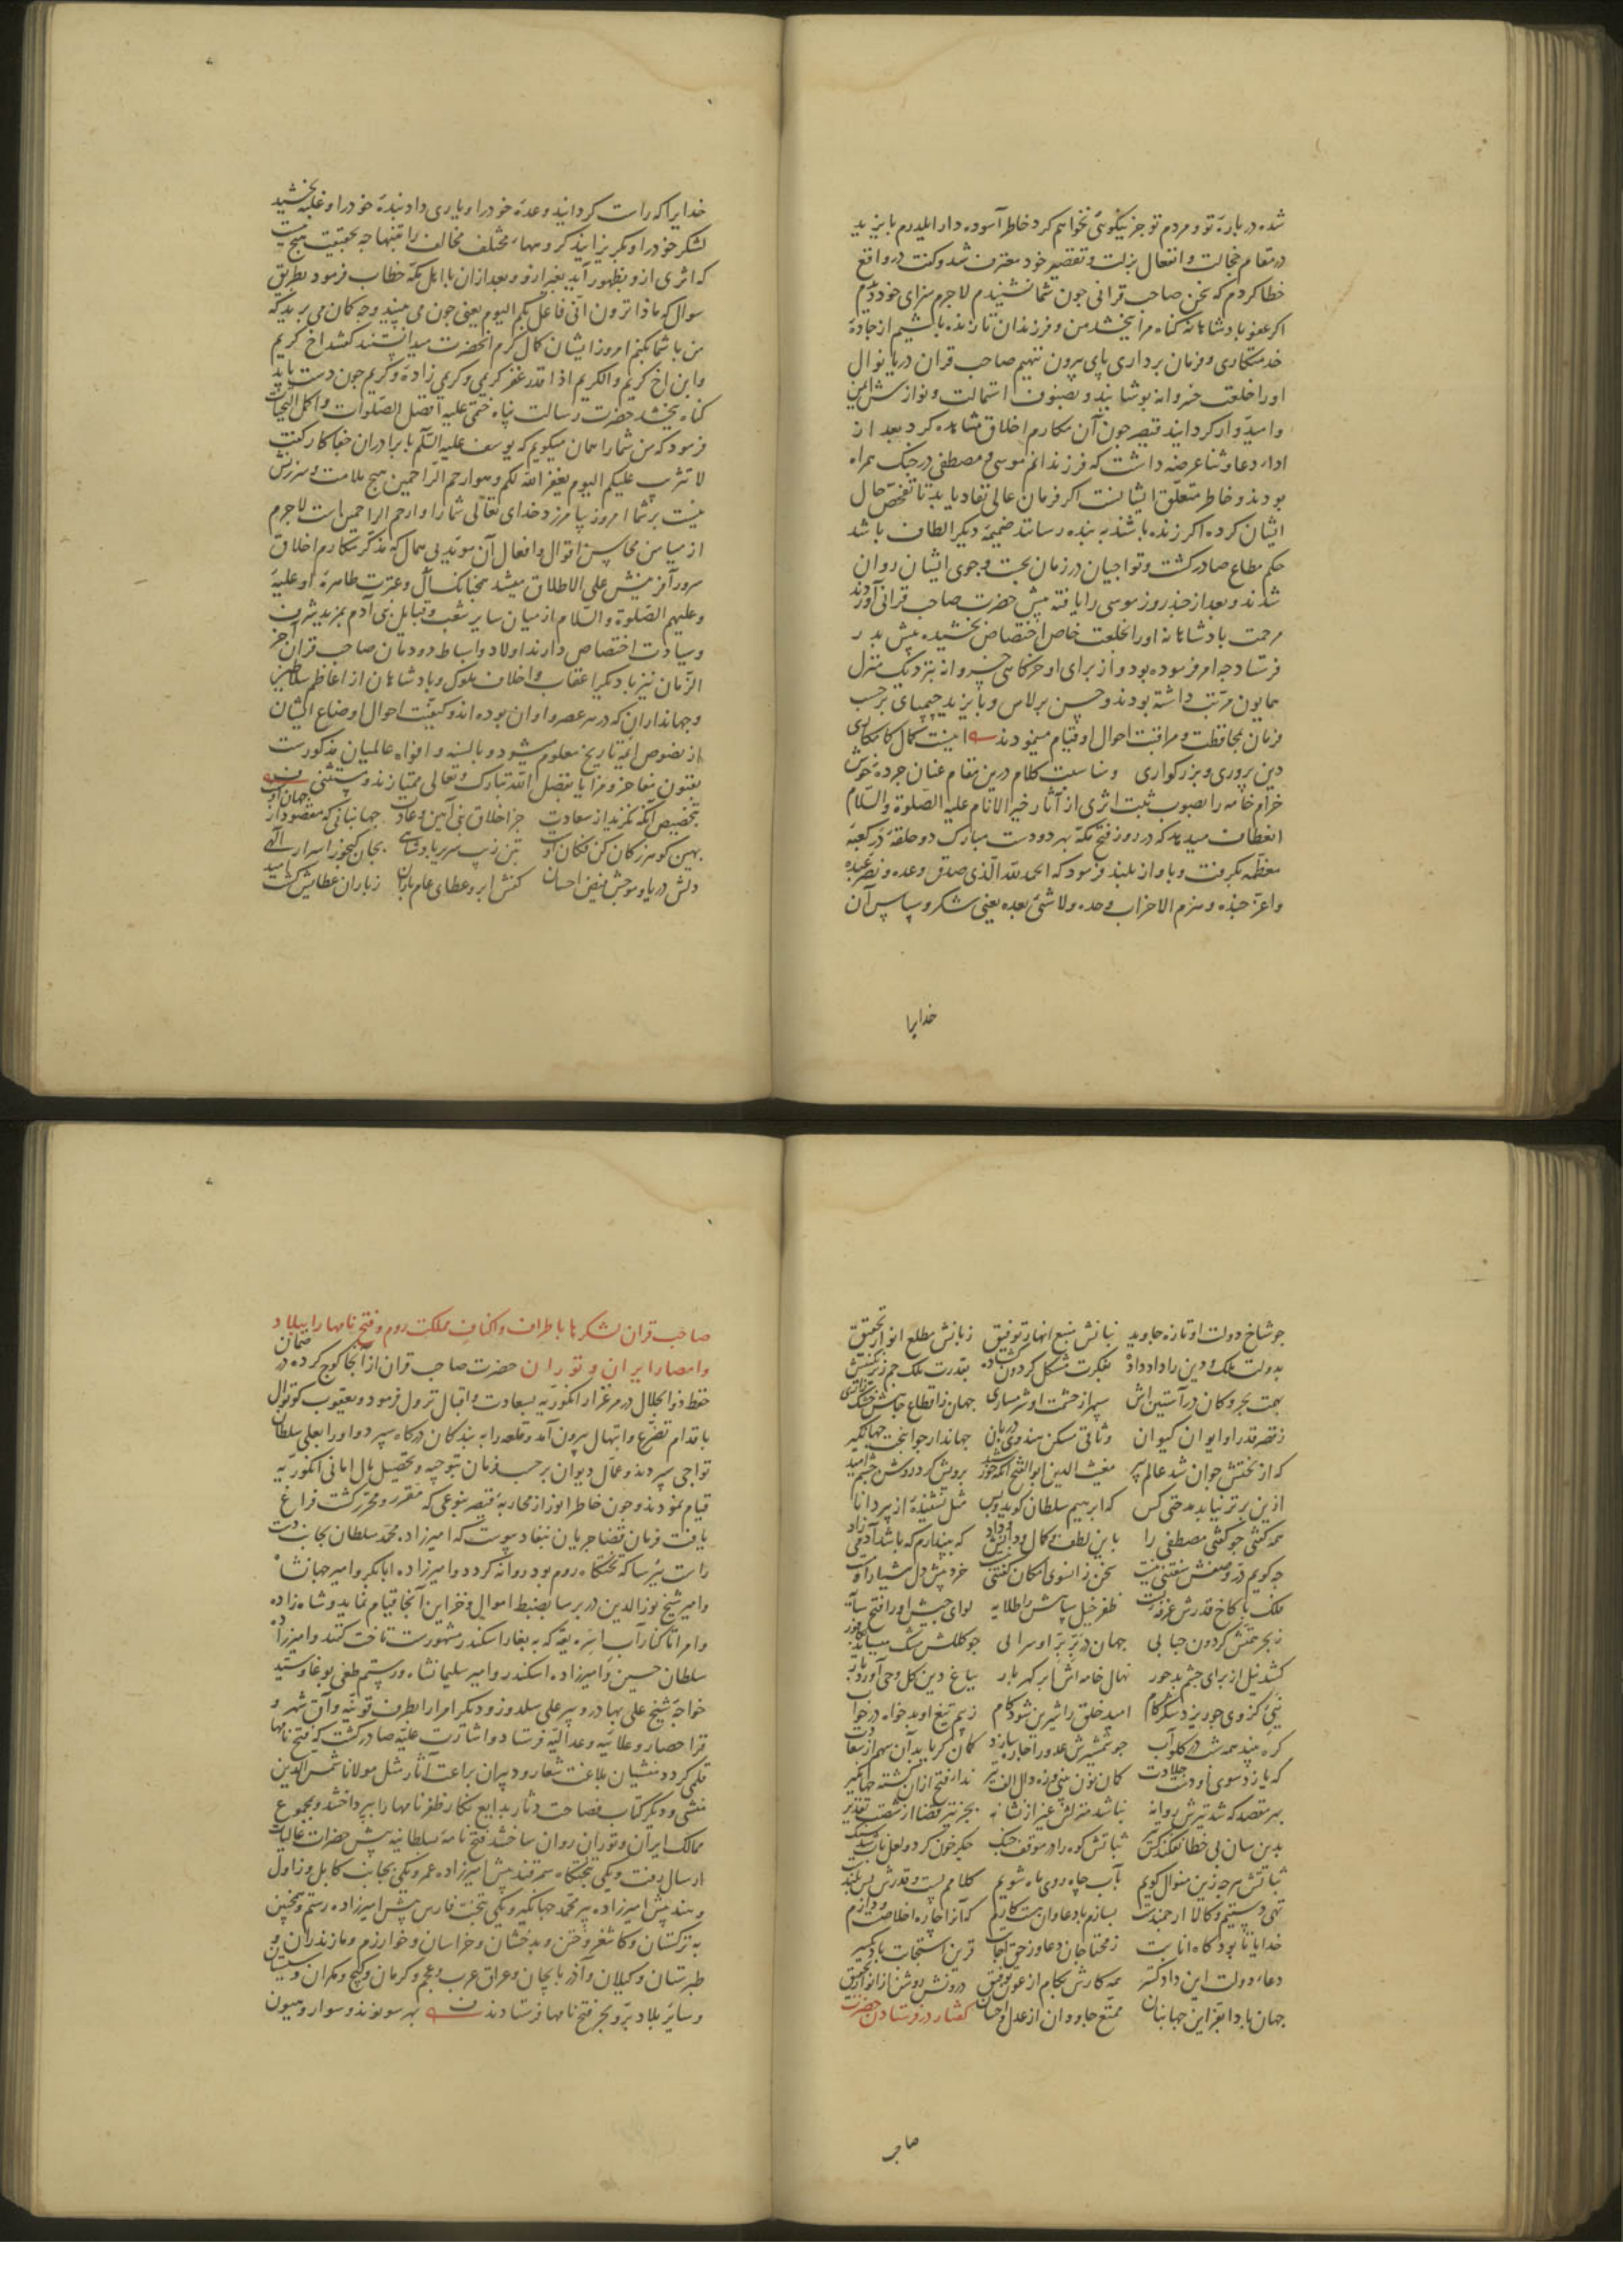 شده درباره تو و مردم تو جز نیکوئی نخواهم کرد خاطر آسوده دار ایلدرم بایزید
در مقام خجالت و انفعال بزلت و تقصیر خود معترف شد و کفت در واقع
خطا کردم که سخن صاحب قرانی جون شما نشنیدم لاجرم سزای خود دیدم
اکر عفو بادشاهانه کناه مرا بخشد من و فرزندان تا زنده باشیم از جاده
خدمتکاری و فرمان برداری پای بیرون ننهیم صاحب قران دریا نوال
اورا خلعت خسروانه بوشانید و بصنوف استمالت و نوازش ایمن
و امیدوار کردانید قیصر جون آن مکارم اخلاق مشاهده کرد بعد از
اداء دعا و ثنا عرضه داشت که فرزندانم موسی و مصطفی در جنک همراه
بودند و خاطر متعلق ایشانست اکر فرمان عالی نفاد یابد تا تفحص حال
ایشان کرده اکر زنده باشند به بنده رسانند ضمیمه دیکر الطاف باشد
حکم مطاع صادر کشت و تواجیان در زمان بجست و جوی ایشان روان
شدند و بعد از جند روز موسی را یافته پیش حضرت صاحب قرانی آوردند
مرحمت بادشاهانه اورا بخلعت خاص اختصاص بخشیده پیش بدر
فرستاد جه امر فرموده بود و از برای او خرکاهی خسروانه نزدیک منزل
همایون مرتب داشته بودند و حسن برلاس و بایزید جمپای برحسب
فرمان بمحافظت و مراقبت احوال او قیام مینمودند اینست کمال کامکاری
دین پروری و بزرکواری و مناسبت کلام درین مقام عنان جرده خوش
خرام خامه را بصوب ثبت اثری از آثار خیر الانام علیه الصلوة والسلام
انعطاف میدهد که در روز فتح مکه بهر دو دست مبارک دو حلقه در کعبه
معظمه بکرفت و باواز بلند فرمود که الحمد لله الذی صدق وعده و نصر عبده
واعز جنده وهزم الاحزاب وحده ولا شئ بعده یعنی شکر و سپاس آن
خدایرا
خدایرا که راست کردانید وعده خودرا و یاری داد بنده خودرا و غلبه بخشید
لشکر خودرا و بکریزانید کروههاء مختلف مخالف را بتنها جه بحقیقت هیچ نیست
که اثری ازو بظهور آید بغیر ازو و بعد ازان با اهل مکه خطاب فرمود بطریق
سوال که ماذا ترون انی فاعل بکم الیوم یعنی جون می بینید وجه کمان می برید که
من با شما بکنم امروز ایشان کمال کرم آنحضرت میدانستند کفتند اخ کریم
وابن اخ کریم والکریم اذا قدر غفر کریمی و کریم زاده و کریم جون دست یابد
کناه بخشد حضرت رسالت پناه ختمی علیه افضل الصلوات واکمل التحیات
فرمود که من شمارا همان میکویم که یوسف علیه السلم با برادران جفاکار کفت
لا تثریب علیکم الیوم یغفر الله لکم وهو ارحم الراحمین هیچ ملامت و سرزنش
نیست بر شما امروز بیامرزد خدای تعالی شمارا و ارحم الراحمین است لاجرم
از میامن محاسن اقوال و افعال آن موید بی همال که مذکر مکارم اخلاق
سرور آفرینش علی الاطلاق میشد همجنانک آل و عترت طاهره او علیه
وعلیهم الصلوة والسلام از میان سایر شعب و قبایل بنی آدم بمزید شرف
و سیادت اختصاص دارند اولاد و اسباط دودمان صاحب قران آخر
الزمان نیز با دیکر اعقاب و اخلاف ملوک و بادشاهان از اعاظم سلاطین
و جهانداران که در هر عصر و اوان بوده اند و کیفیت احوال و اوضاع ایشان
از نصوص ایمه تاریخ معلوم میشود و بالسنه و افواه عالمیان مذکورست
بفنون مفاخر و مزایا بفضل الله تبارک و تعالی ممتازند و مستثنی
بتخصیص آنکه نکزیند از سعادت جز اخلاق نبی آیین و عادت جهانبانی که مقصود از جهان او
بهین کوهر ز کان کن فکان او بتن زیب سریر بادشاهی بجان کنجور اسرار الهی
دلش دریا و موجش فیض احسان کفش ابر و عطای عام باران ز باران عطایش کشت امید
جو شاخ دولت او تازه جاوید بنانش منبع انهار توفیق زبانش مطلع انوار تحقیق
بدولت ملک و دین را داد داده بفکرت مشکل کردون کشاده بقدرت ملک جم زیر نکینش
بهمت بحر و کان در آستین اش سپهر از حشمت او شرمساری جهان ز اقطاع جاهش
ز قصر قدر او ایوان کیوان وثاقی مسکن هندوی دربان جهاندار جوانبخت جهانکیر
که از بختش جوان شد عالم پیر مغیث الدین ابو الفتح آنکه خورشید برویش کرد روشن جشم امید
ازین برتر نیابد مدحتی کس که ابرهیم سلطان کوید و بس مثل نشنیده از پیر دانا
همه کفتی جو کفتی مصطفی را باین لطف و کمال و دانش و داد که پندارم که باشد آدمی زاد
جه کویم در وصفش سفتنی نیست سخن زانسوی امکان کفتنی نیست خرد پیش دل هشیار او
فلک با کاخ قدرش غرفه ظفر خیل سپاهش را طلایه لوای جیش اورا فتح سایه
ز بحر حشمتش کردون حبابی جهان در بر بر او سرابی جو کلکش مشک
کشد نیل از برای جشم بد حور نهال خامه اش ابر کهر بار بباغ دین کل وحی آورد بار
نیی کز وی جو ریزد شکر کام امید خلق را شیرین شود کام ز بیم تیغ او بدخواه در خواب
کره بیند همه شب در کلو آب جو شمشیرش عدورا جاره سازد
که یازد سوی او دست جلادت کمان نون بینی و زه دال الف تیر ندارد فتح ازان کشته جهانکیر
بهر مقصد که شد تیرش روانه نباشد منزلش غیر از نشانه بجز تیر قضا از شصت تقدیر
بدین سان بی خطا نفکند کس تیر ثباتش کوه را در موقف جنک جکر خون کرد و لعل نام شد سنک
ثباتش هرجه زین منوال کویم بآب جاه روی ماه شویم کلامم پست و قدرش بس بلندست
تهی دستیم و کالا ارجمندست بسازم با دعاوان هست کارم که آنرا جاره اخلاصست و دارم
خدایا تا بود کاه انابت ز محتاجان دعا و ز حق اجابت قرین استجابت باد
دعاء دولت این داد کستر همه کارش بکام از عون توفیق درونش روشن از انوار تحقیق
جهان بادا بفر این جهانبان ممتع جاودان از عدل و احسان کفتار در فرستادن حضرت
صاحب
صاحب قران لشکرها باطراف و اکناف مملکت روم و فتح نامها را ببلاد
و امصار ایران و توران حضرت صاحب قران از آنجا کوج کرده در ضمان
حفظ ذوالجلال در مرغزار انکوریه بسعادت و اقبال نزول فرمود و یعقوب کوتوال
باقدام تضرع و ابتهال بیرون آمد و قلعه را به بندکان درکاه سپرد و اورا بعلی سلطان
تواجی سپردند و عمال دیوان برحسب فرمان بتوجیه و تحصیل مال امانی انکوریه
قیام نمودند و جون خاطر انور از محاربه قیصر بنوعی که مقرر و محرر کشت فراغ
یافت فرمان قضا جریان بنفاد پیوست که امیرزاده محمد سلطان بجانب دست
راست ببرسا که تختکاه روم بود روانه کردد و امیرزاده ابابکر و امیر جهانشاه
و امیر شیخ نورالدین در برسا بضبط اموال و خزاین آنجا قیام نماید و شاه زاده
و امرا تا کنار آب اسره یقه که به بغاز اسکندر مشهورست تاخت کنند و امیرزاده
سلطان حسین و امیرزاده اسکندر و امیر سلیمانشاه و رستم طغی بوغا و سید
خواجه شیخ علی بهادر و پیر علی سلدوز و دیکر امرا را بطرف قونیه و آق شهر و
قرا حصار و علائیه و عدالیه فرستاد و اشارت علیه صادر کشت که فتح نامها
قلمی کردد منشیان بلاغت شعار و دبیران براعت آثار مثل مولانا شمس الدین
منشی و دیکر کتاب فصاحت دثار بدایع نکار ظفر نامها را بپرداختند و بمجموع
ممالک ایران و توران روان ساختند فتح نامه بسلطانیه پیش حضرات عالیات
ارسال رفت و یکی بتختکاه سمرقند پیش امیرزاده عمر و یکی بجانب کابل و زاول
و هند پیش امیرزاده پیر محمد جهانکیر و یکی بتخت فارس پیش امیرزاده رستم و همجنین
به ترکستان و کاشغر و ختن و بدخشان و خراسان و خوارزم و مازندران و
طبرستان و کیلان و آذربایجان و عراق عرب و عجم و کرمان و کیج و مکران و سیستان
و سایر بلاد بر و بحر فتح نامها فرستادند بهر سو نوند و سوار و هیون